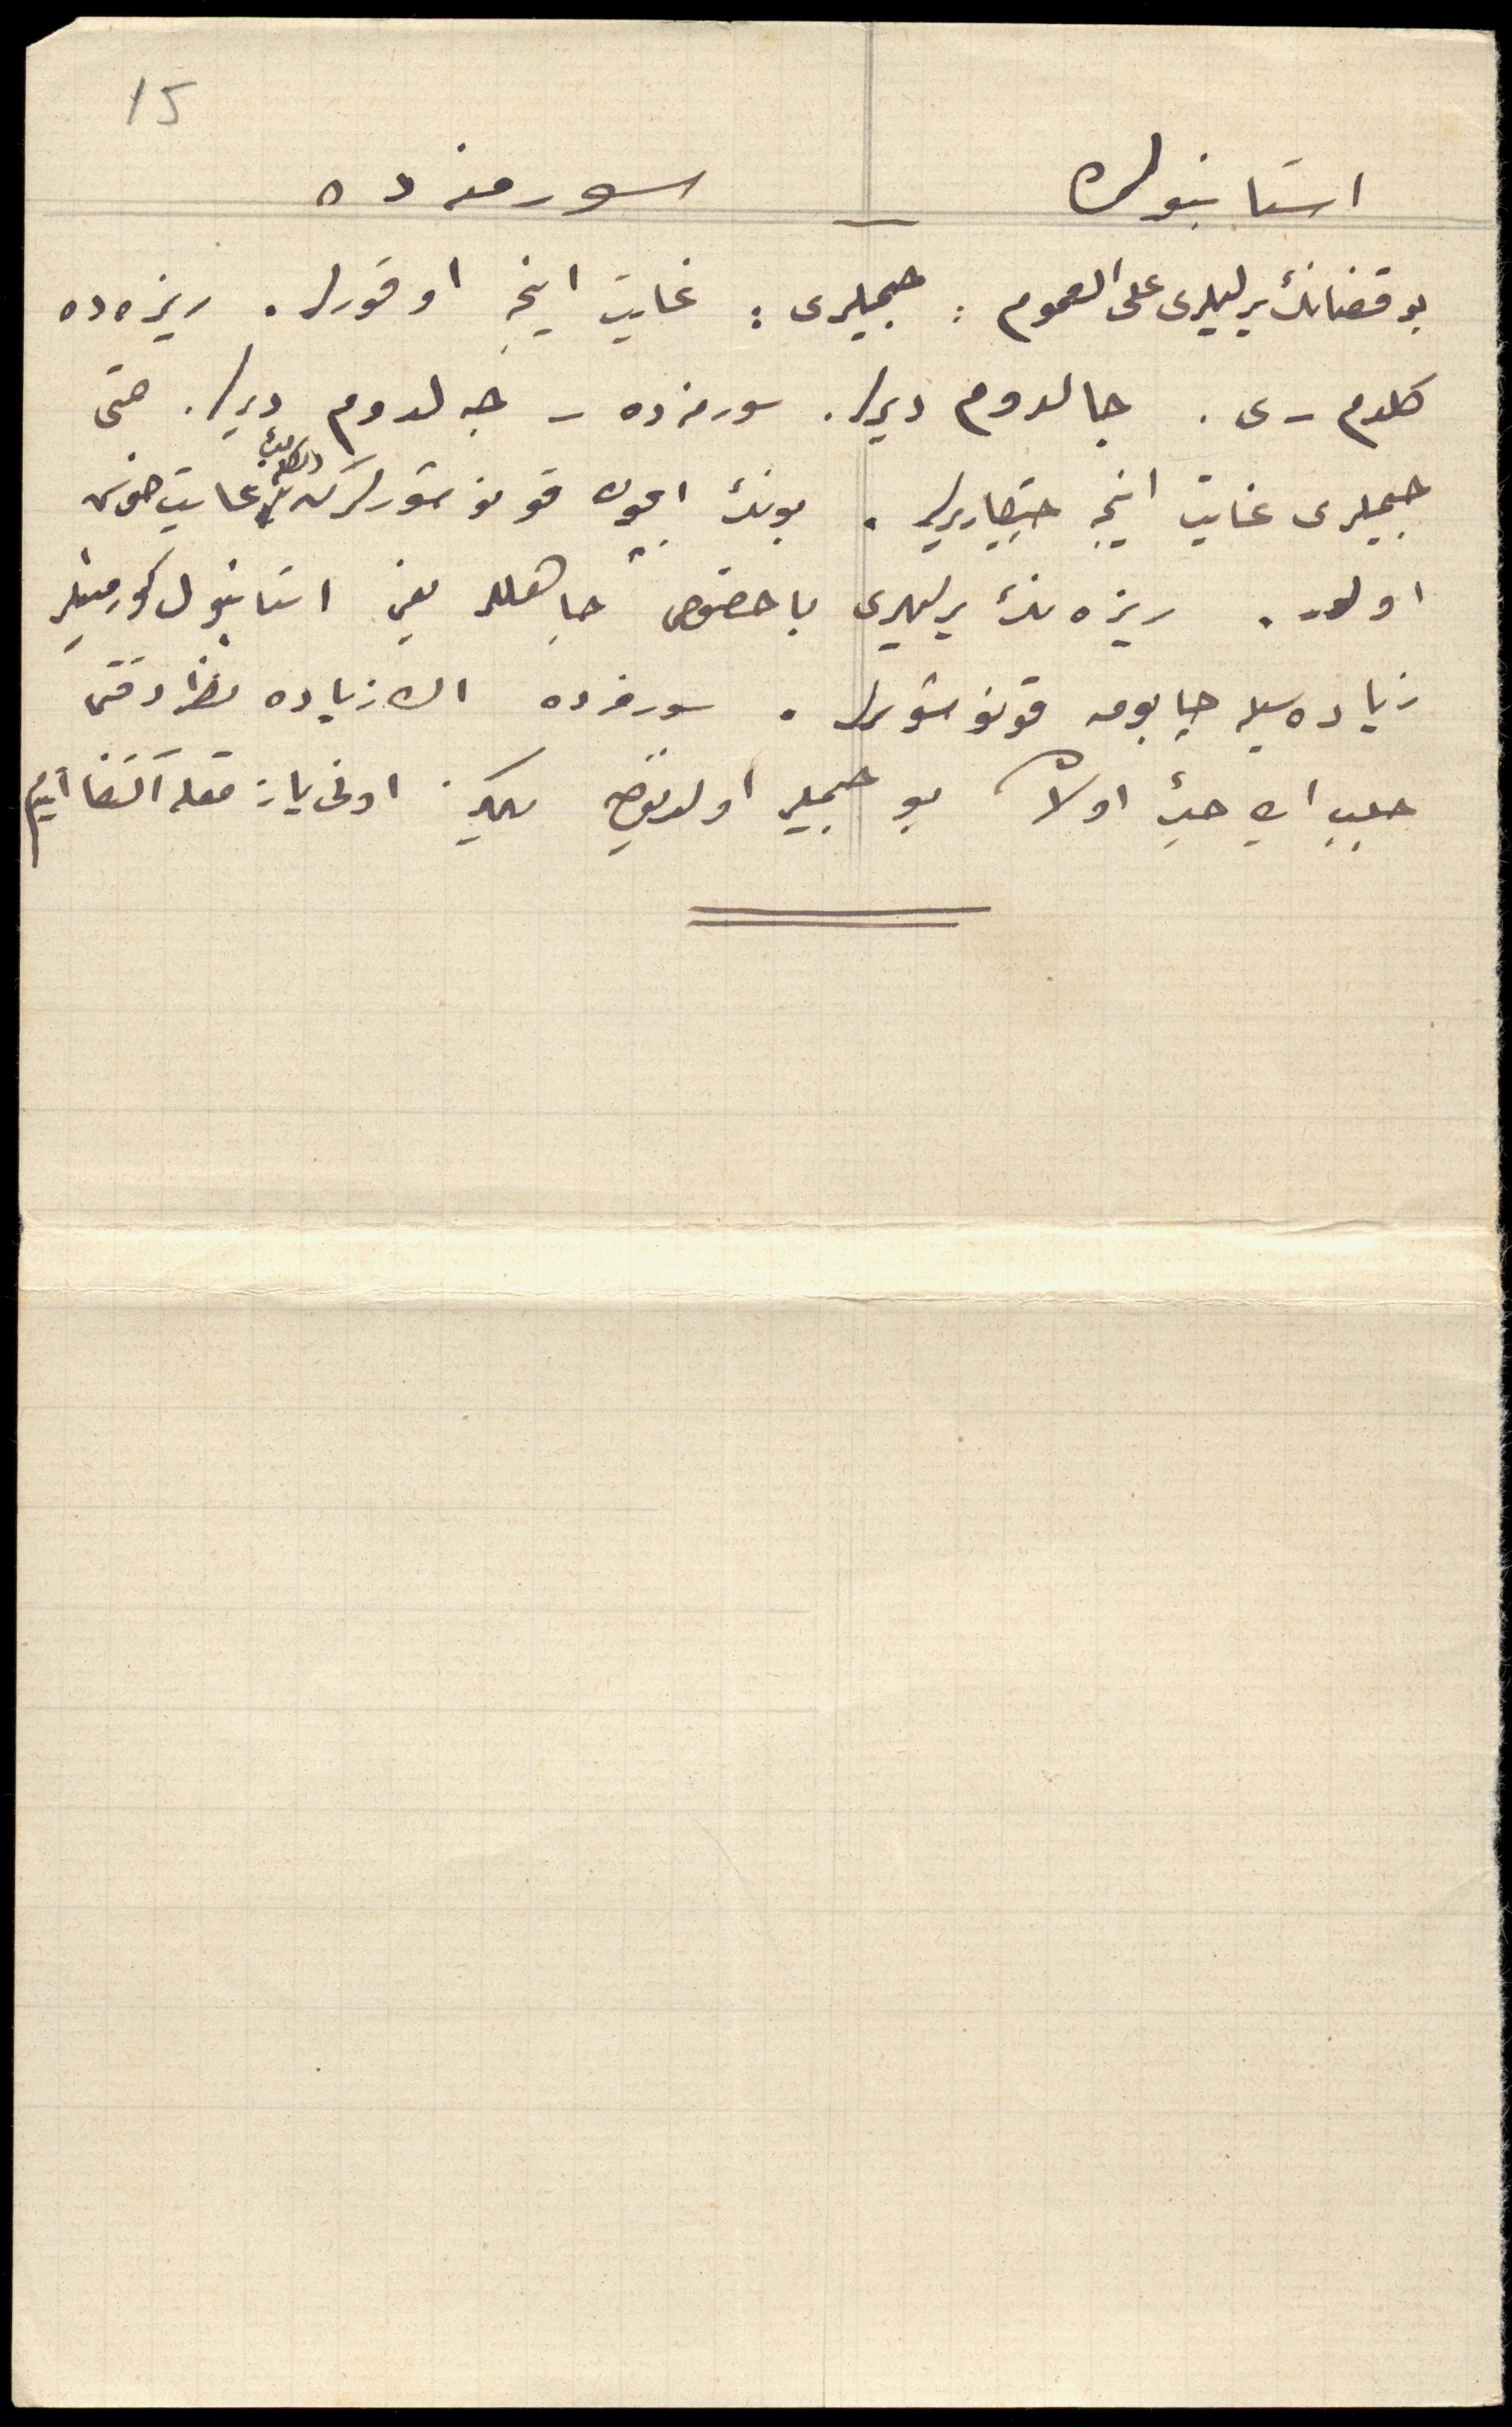 15
استانبولده — سورمنه ده
بو قضانڭ يرليلرى على العموم : جيملرى : غايت اينجه اوقورلر . ريزه ده
كلدم ـ ى . جالدوم ديرلر . سورمنه ده ـ جه لدوم ديرلر . حتى
جيملرى غايت اينجه چيقاريرلر . بونڭ ايچون قونوشورلركن غايت خوش
اولور . ريزه نڭ يرليلرى باخصوص جاهللر يعنى استانبول كورمينلر
زياده سيله چابوق قونوشورلر . سورمنه ده اڭ زياده نظر دقتى
جلب ايدن شى اولا بو جيملر اولديغندن اونى يازمقله اكتفا ايتدم